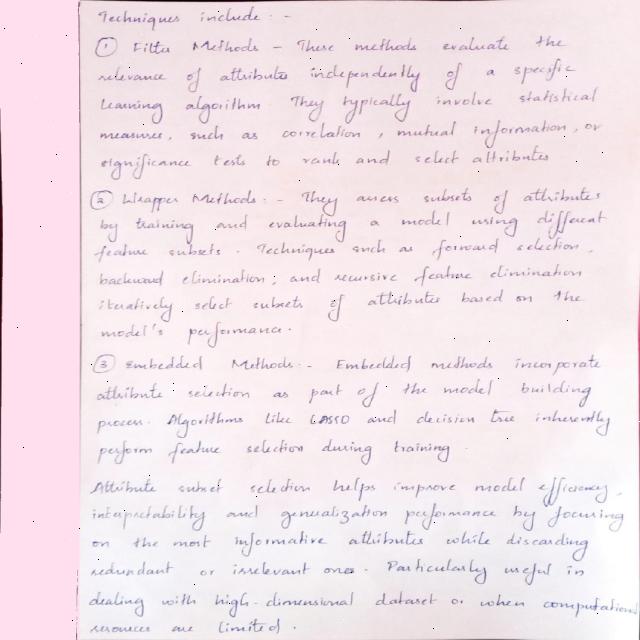 Techniques include : -
① Filter Methods - These methods evaluate the
relevance of attributes independently of a specific
learning algorithm. They typically involve statistical
measures, such as correlation, mutual information, or
significance tests to rank and select attributes
② Wrapper Methods : - They assess subsets of attributes
by training and evaluating a model using different
feature subsets. Techniques such as forward selection,
backward elimination, and recursive feature elimination
iteratively select subsets of attributes based on the
model's performance.
③ Embedded Methods :- Embedded methods incorporate
attribute selection as part of the model building
process. Algorithms like LASSO and decision tree inherently
perform feature selection during training
Attribute subset selection helps improve model efficiency,
interpretability and generalization performance by focusing
on the most informative attributes while discarding
redundant or irrelevant ones. Particularly useful in
dealing with high-dimensional dataset or when computational
resources are limited.